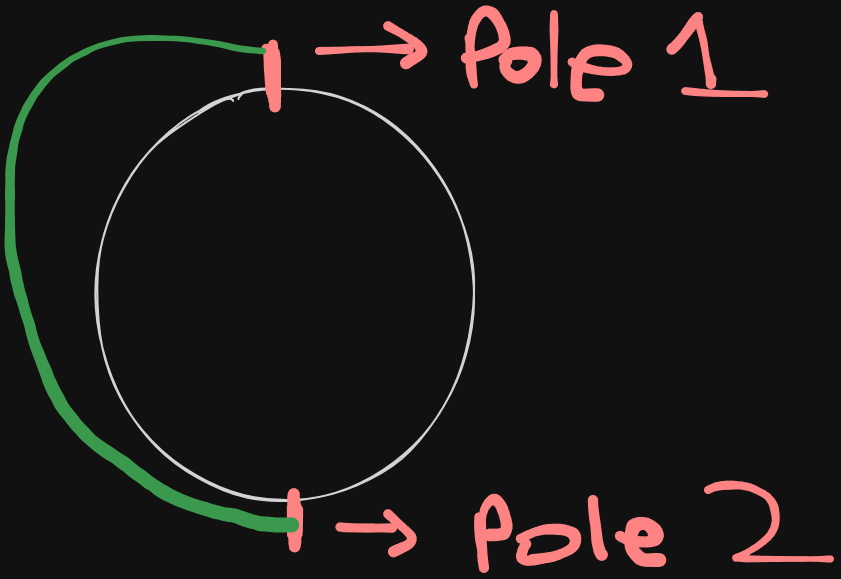 Pole 1
Pole 2